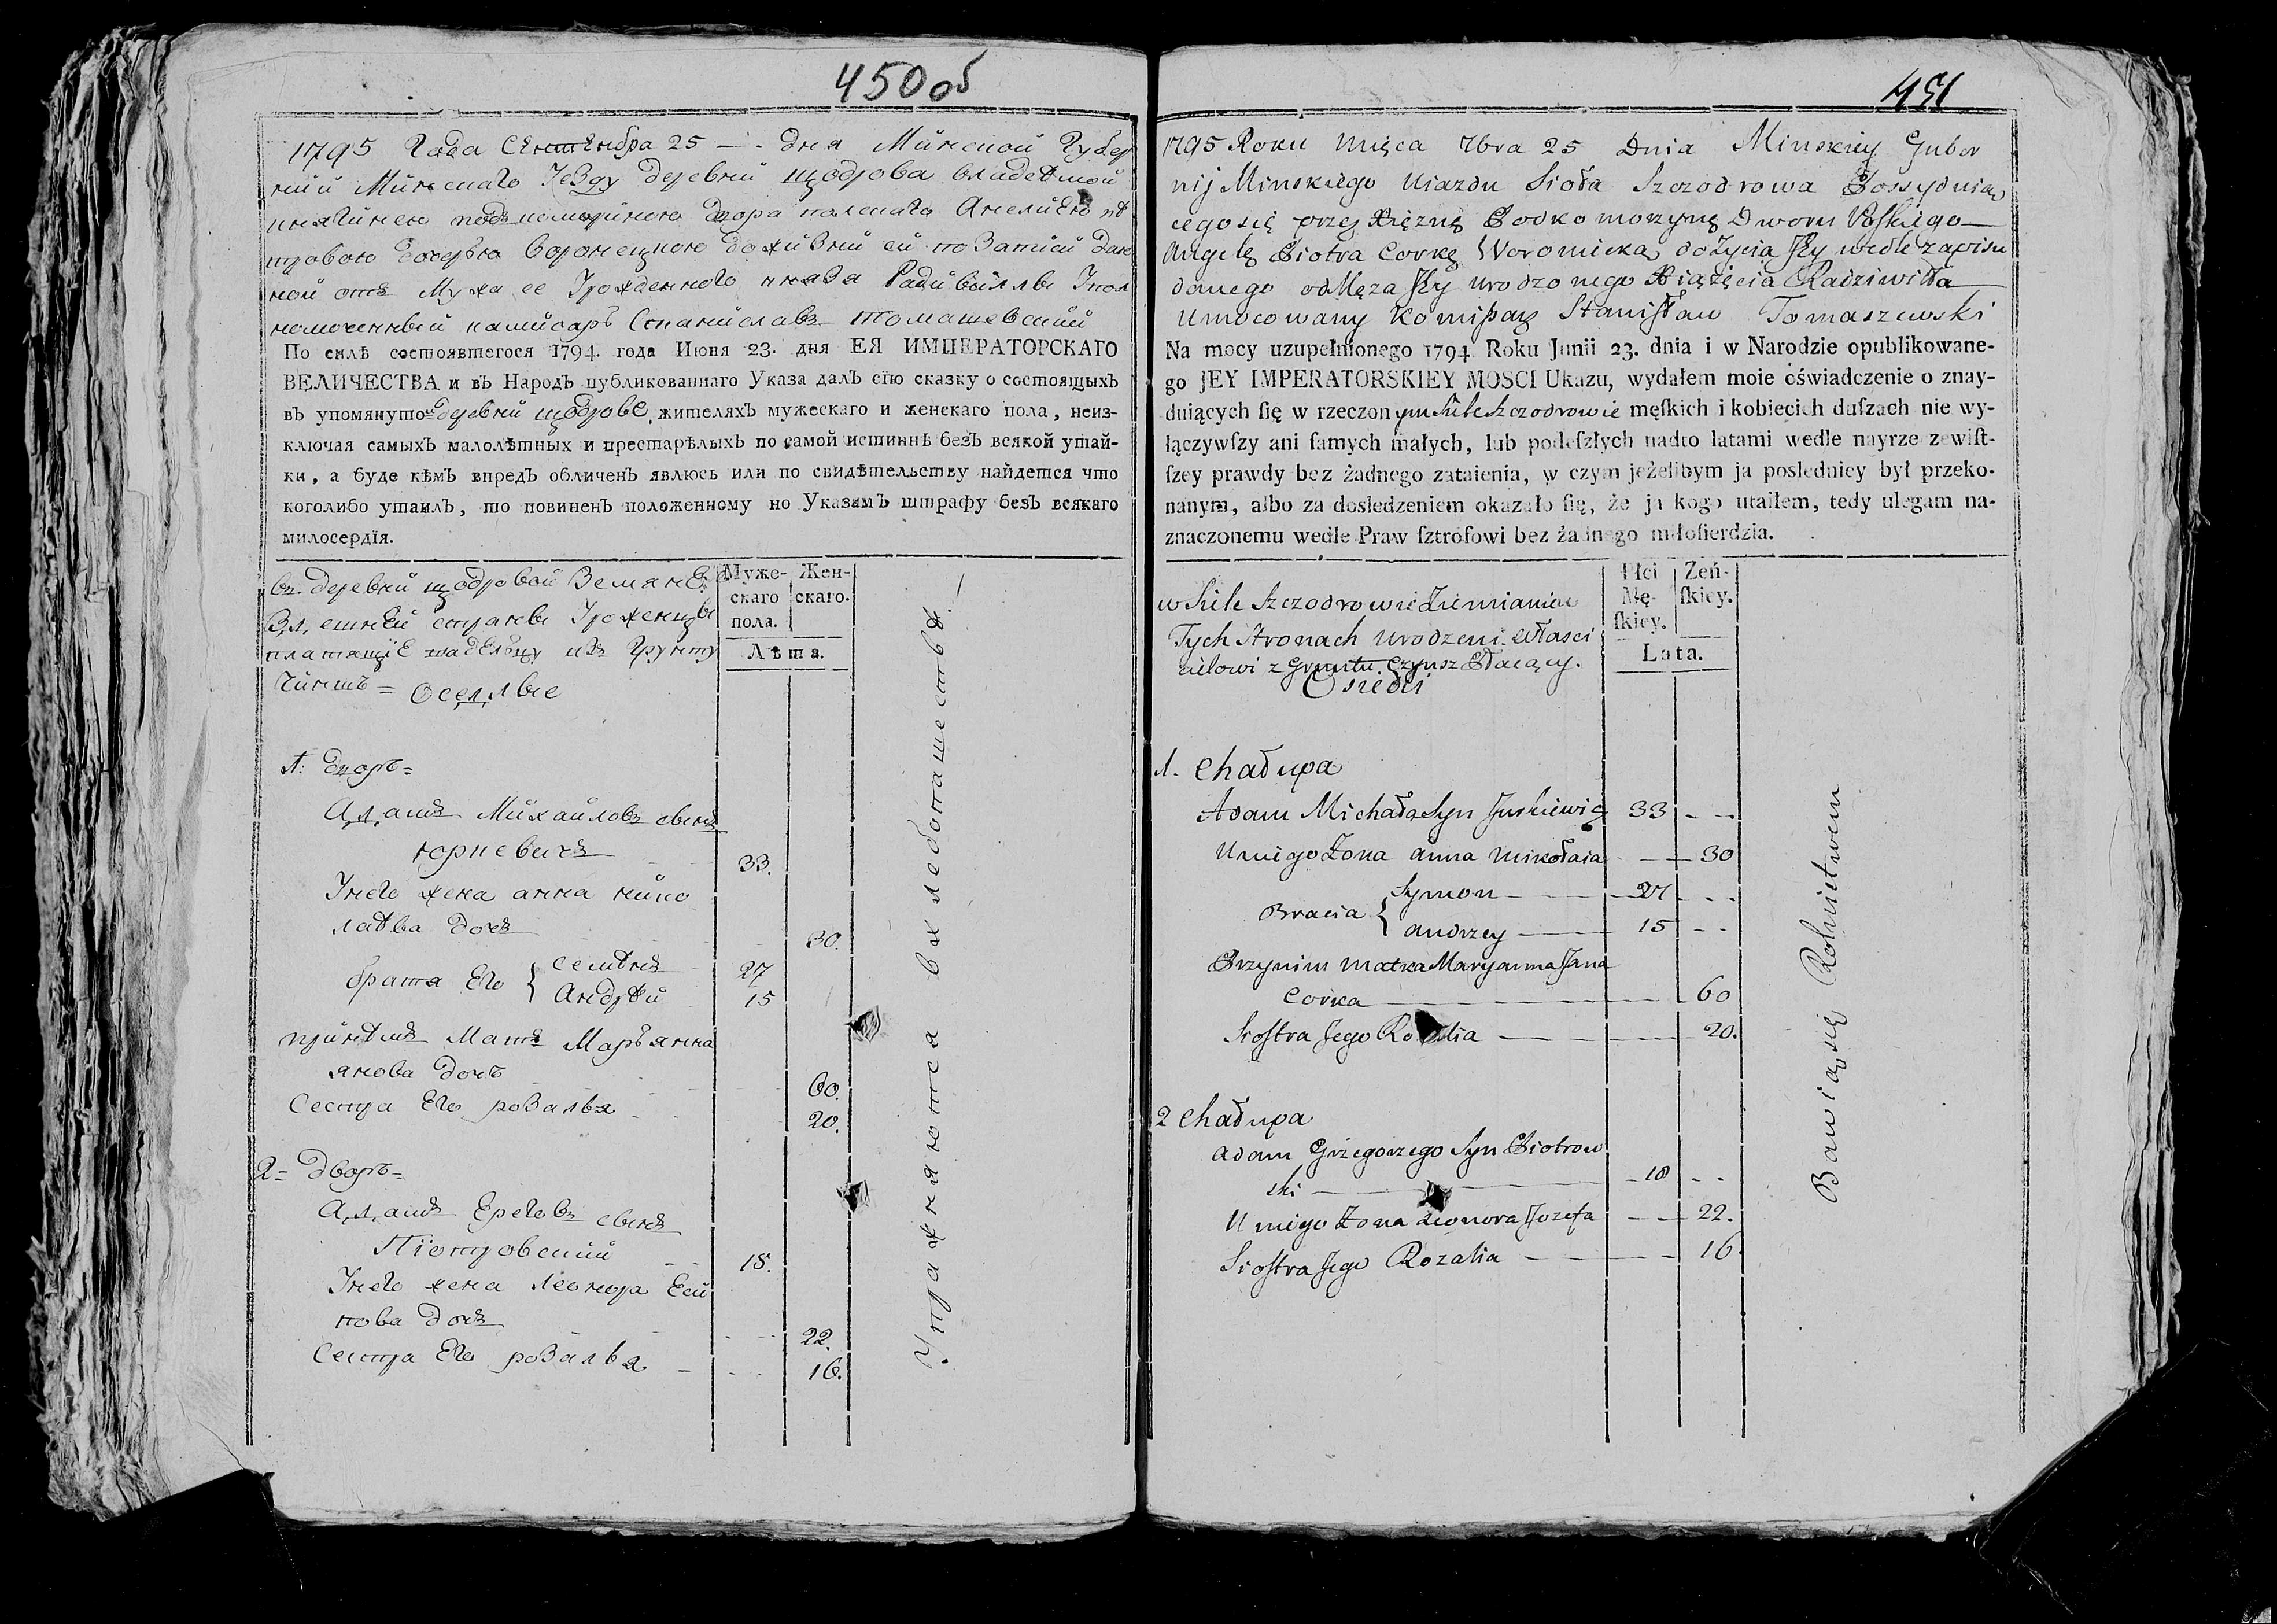 450 об
1795 Года Сентября 25 — дня Минской Губер
нии Минскаго Уезду деревни щодрова владеемой
княгинею подкоморйною двора полскаго Анелиею пе
тровою дочерью воронецкою дожизни ей по записи дан
ной отъ Мужа ее Урожденного князя Радивилла Упол
номоченный камисаръ Станиславъ Томашевский
По силѣ состоявшегося 1794. года Июня 23. дня ЕЯ ИМПЕРАТОРСКАГО
ВЕЛИЧЕСТВА и въ Народъ публикованнаго Указа далъ сїю сказку о состоящыхъ
въ упомянуто= деревни щодрове, жителяхъ мужескаго и женскаго пола, неиз-
ключая самыхъ малолѣтныхъ и престарѣлыхъ по самой истиннѣ безъ всякой утай-
ки, а буде кѣмъ впредъ обличенъ явлюсь или по свидѣтельству найдется что
коголибо утаилъ, то повиненъ положенному по Указамъ штрафу безъ всякаго
милосердїя.
Муже-
скаго
пола.
Жен-
скаго.
Лѣта.
въ деревни щодровой Земяне
здешней страны Уроженцы
платящие владелцу изъ Грунту
Чиншъ = оседлые
1: Дворъ=
Адамъ Михайловъ сынъ
юркевичъ 33.
Унего жена анна мико
лаева дочъ 30.
братя Его { семенъ 27
Андрей 15
принемъ Мать Марьянна
янова дочъ 60.
Сестра Его розалья 20.
2= дворъ=
Адамъ Ереговъ сынъ
Піотровский 18.
Унего жена леонора Есй
пова дочъ 22.
Сестра Его розалья 16.
Упражняются въ хлебопашестве
451
1795 Roku Mięca 7bra 25 Dnia Minskiey Guber
nij Minskiego Ujazdu Sioła Szczodrowa Possyduią
cego się przez Xiężnę Podkomorzynę Dworu Polskiego
Angelę Piotra Corkę Woromicką do Zycia Jey wedle zapisu
danego od Męza Jey urodzonego Xiążęcia Radziwiłła
Umocowany Komiſsarz Staniſław Tomaszewski
Na mocy uzupełnionego 1794 Roku Junii 23. dnia i w Narodzie opublikowane-
go JEY IMPERATORSKIEY MOSCI Ukazu, wydałem moie oświadczenie o znay-
duiących ſię w rzeczonym Siele Szczodrowie męſkich i kobiecich duſzach nie wy-
łączywſzy ani ſamych małych, lub podeſzłych nadto latami wedle nayrzezewiſt-
ſzey prawdy bez żadnego zataienia, w czym jeżelibym ja poslednicy był przeko-
nanym, albo za dosledzeniem okazało ſię, że ja kogo utaiłem, tedy ulegam na-
znaczonemu wedle Praw ſztrofowi bez żadnego miłoſierdzia.
Płci
Mę-
ſkiey.
Zeń-
ſkiey.
Lata.
w Siele Szczodrowie Ziemianie
Tych Stronach urodzeni właści
cielowi z Gruntu Czynsz Płacący.
Osiedli
1. Chałupa
Adam Michała Syn Jurkiewicz 33
U niego Zona Anna Mikołaia 30
Bracia { Symon 27
Andrzey 15
Przynim matka Maryanna Jana
Corka 60
Siostra Jego Rozalia 20.
2 Chałupa
Adam Grzegorzego Syn Piotrow
ski 18
U niego Zona Leonora Jozefa 22.
Siostra Jego Rozalia 16
Bawią się Rolnictwem